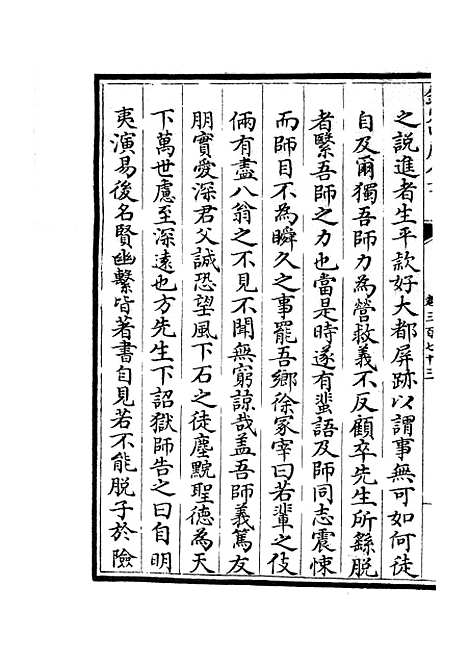 之說進者生平款好大都屏跡以謂事無可如何徒
自及爾獨吾師力為營救義不反顧卒先生所繇脫
者繄吾師之力也當是時遂有蜚語及師同志震悚
而師目不為瞬久之事罷吾鄉徐冢宰曰若輩之伎
倆有盡八翁之不見不聞無窮諒哉蓋吾師義篤友
朋實愛深君父誠恐望風下石之徒塵黦聖德為天
下萬世慮至深遠也方先生下詔獄師告之曰自明
夷演易後名賢幽繫皆著書自見若不能脫子於險
卷三百七十三